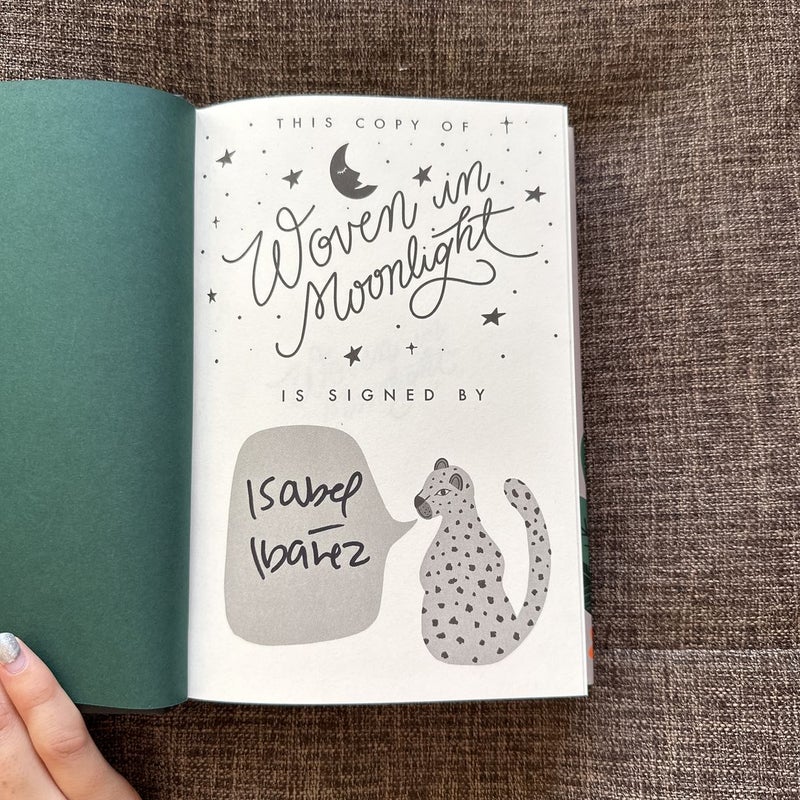 THIS COPY OF
Woven in
Moonlight
IS SIGNED BY
Isabel
Ibañez